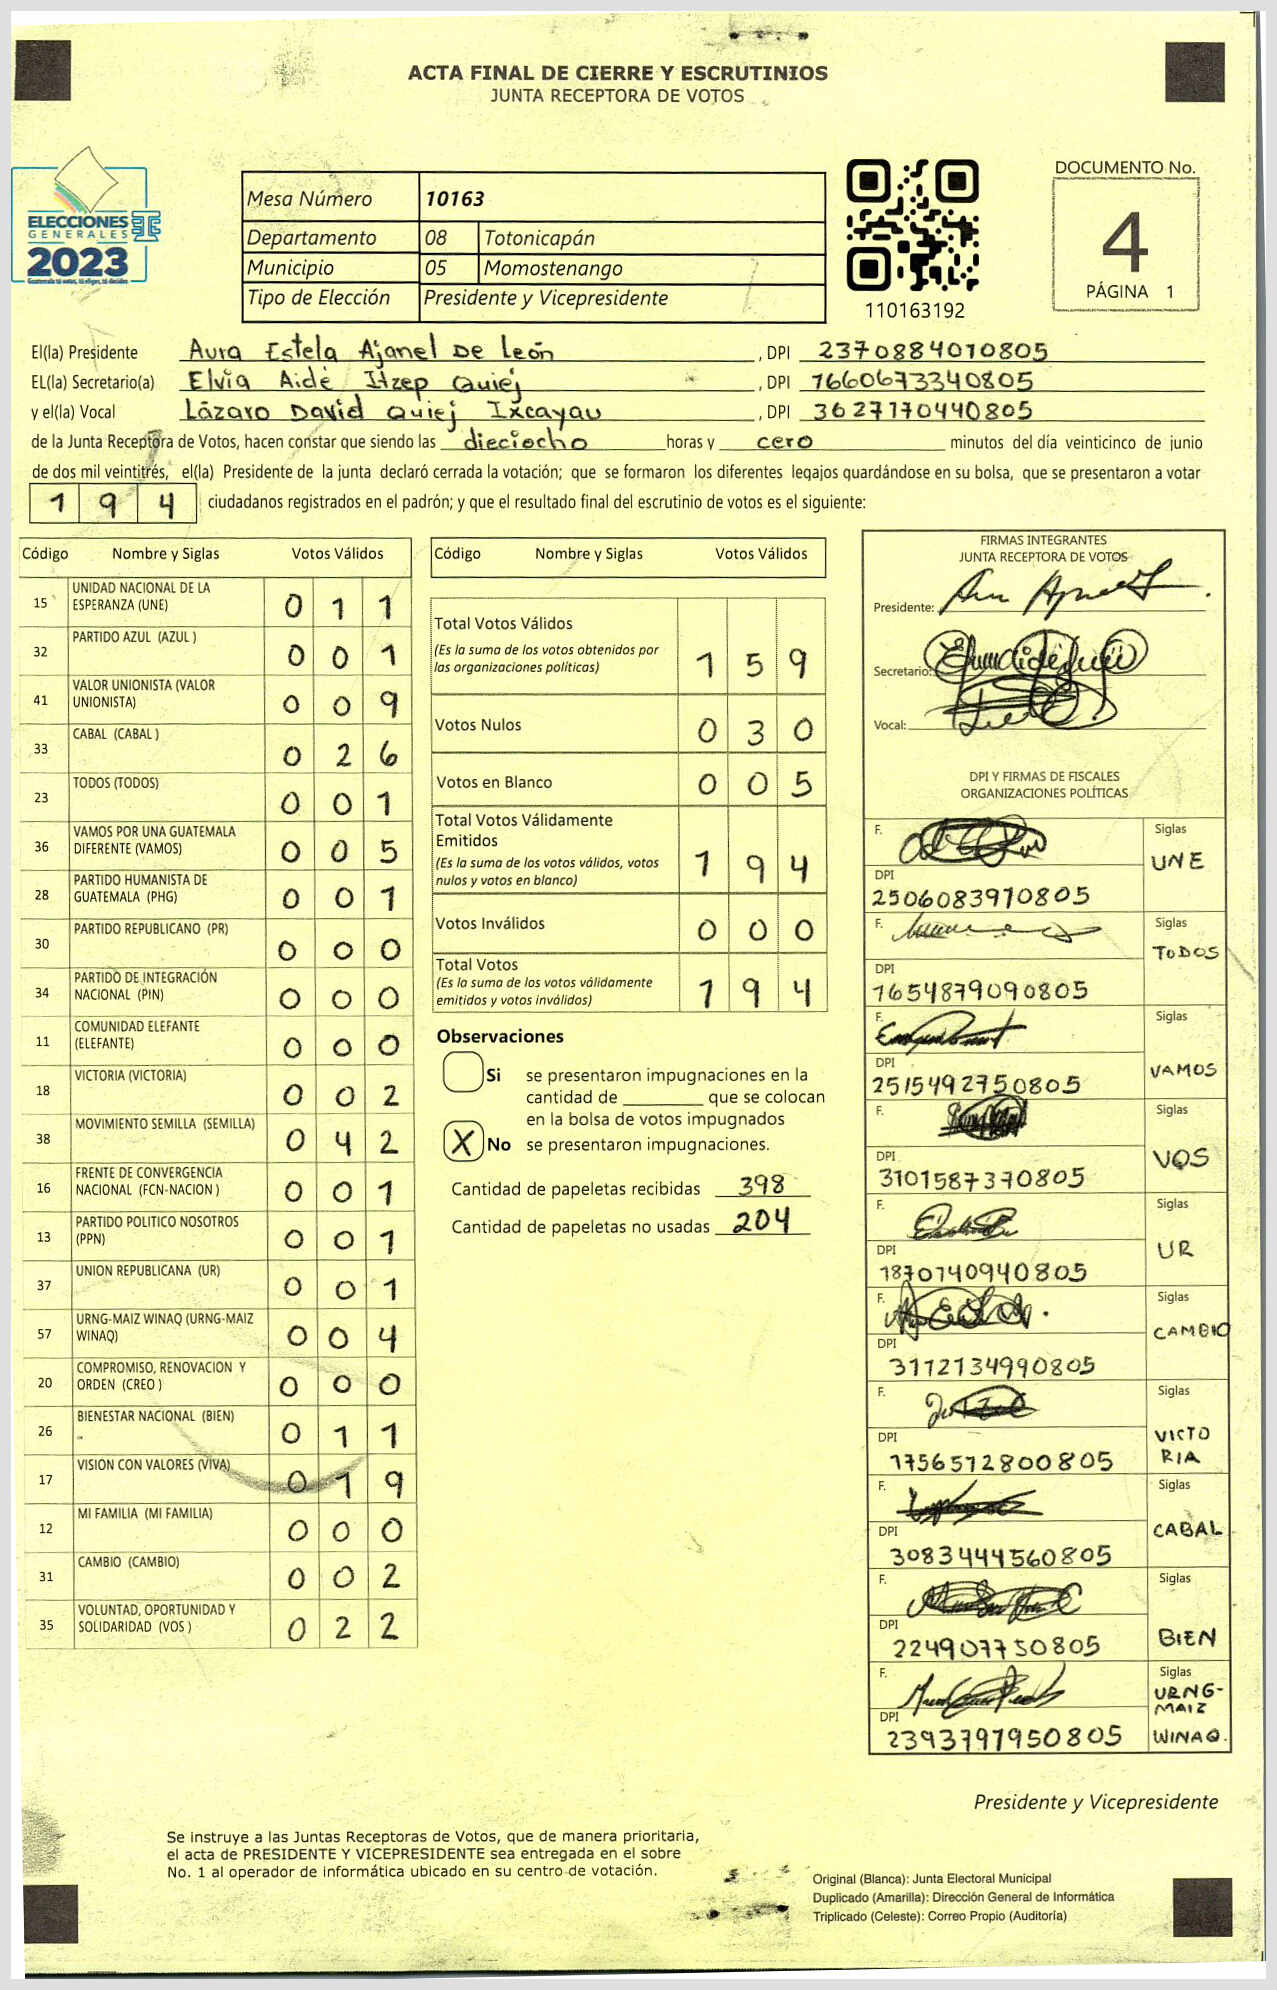 ACTA FINAL DE CIERRE Y ESCRUTINIOS
JUNTA RECEPTORA DE VOTOS
ELECCIONES
GENERALES
2023
Guatemala tú votas, tú eliges, tú decides
Mesa Número 10163
Departamento 08 Totonicapán
Municipio 05 Momostenango
Tipo de Elección Presidente y Vicepresidente
110163192
DOCUMENTO No.
4
PÁGINA 1
El(la) Presidente Aura Estela Ajanel De león , DPI 2370884010805
EL(la) Secretario(a) Elvia Aidé Itzep Quiej , DPI 1660673340805
y el(la) Vocal Lázaro David Quiej Ixcayau , DPI 3627170440805
de la Junta Receptora de Votos, hacen constar que siendo las dieciocho horas y cero minutos del día veinticinco de junio
de dos mil veintitrés, el(la) Presidente de la junta declaró cerrada la votación; que se formaron los diferentes legajos guardándose en su bolsa, que se presentaron a votar
194 ciudadanos registrados en el padrón; y que el resultado final del escrutinio de votos es el siguiente:
Código Nombre y Siglas Votos Válidos
15 UNIDAD NACIONAL DE LA ESPERANZA (UNE) 011
32 PARTIDO AZUL (AZUL ) 001
41 VALOR UNIONISTA (VALOR UNIONISTA) 009
33 CABAL (CABAL ) 026
23 TODOS (TODOS) 001
36 VAMOS POR UNA GUATEMALA DIFERENTE (VAMOS) 005
28 PARTIDO HUMANISTA DE GUATEMALA (PHG) 001
30 PARTIDO REPUBLICANO (PR) 000
34 PARTIDO DE INTEGRACIÓN NACIONAL (PIN) 000
11 COMUNIDAD ELEFANTE (ELEFANTE) 000
18 VICTORIA (VICTORIA) 002
38 MOVIMIENTO SEMILLA (SEMILLA) 042
16 FRENTE DE CONVERGENCIA NACIONAL (FCN-NACION ) 001
13 PARTIDO POLITICO NOSOTROS (PPN) 001
37 UNION REPUBLICANA (UR) 001
57 URNG-MAIZ WINAQ (URNG-MAIZ WINAQ) 004
20 COMPROMISO, RENOVACION Y ORDEN (CREO ) 000
26 BIENESTAR NACIONAL (BIEN) 011
17 VISION CON VALORES (VIVA) 019
12 MI FAMILIA (MI FAMILIA) 000
31 CAMBIO (CAMBIO) 002
35 VOLUNTAD, OPORTUNIDAD Y SOLIDARIDAD (VOS ) 022
Código Nombre y Siglas Votos Válidos
Total Votos Válidos
(Es la suma de los votos obtenidos por las organizaciones políticas) 159
Votos Nulos 030
Votos en Blanco 005
Total Votos Válidamente Emitidos
(Es la suma de los votos válidos, votos nulos y votos en blanco) 194
Votos Inválidos 000
Total Votos
(Es la suma de los votos válidamente emitidos y votos inválidos) 194
Observaciones
Si se presentaron impugnaciones en la
cantidad de ________ que se colocan
en la bolsa de votos impugnados
X No se presentaron impugnaciones.
Cantidad de papeletas recibidas 398
Cantidad de papeletas no usadas 204
FIRMAS INTEGRANTES
JUNTA RECEPTORA DE VOTOS
Presidente:
Secretario:
Vocal:
DPI Y FIRMAS DE FISCALES
ORGANIZACIONES POLÍTICAS
F. Siglas UNE
DPI 2506083910805
F. Siglas TODOS
DPI 1654879090805
F. Siglas VAMOS
DPI 2515492750805
F. Siglas VOS
DPI 3101587370805
F. Siglas UR
DPI 1870140940805
F. Siglas CAMBIO
DPI 3112134990805
F. Siglas VICTORIA
DPI 1756512800805
F. Siglas CABAL
DPI 3083444560805
F. Siglas BIEN
DPI 224907750805
F. Siglas URNG-MAIZ WINAQ.
DPI 2393797950805
Presidente y Vicepresidente
Se instruye a las Juntas Receptoras de Votos, que de manera prioritaria,
el acta de PRESIDENTE Y VICEPRESIDENTE sea entregada en el sobre
No. 1 al operador de informática ubicado en su centro de votación.
Original (Blanca): Junta Electoral Municipal
Duplicado (Amarilla): Dirección General de Informática
Triplicado (Celeste): Correo Propio (Auditoría)